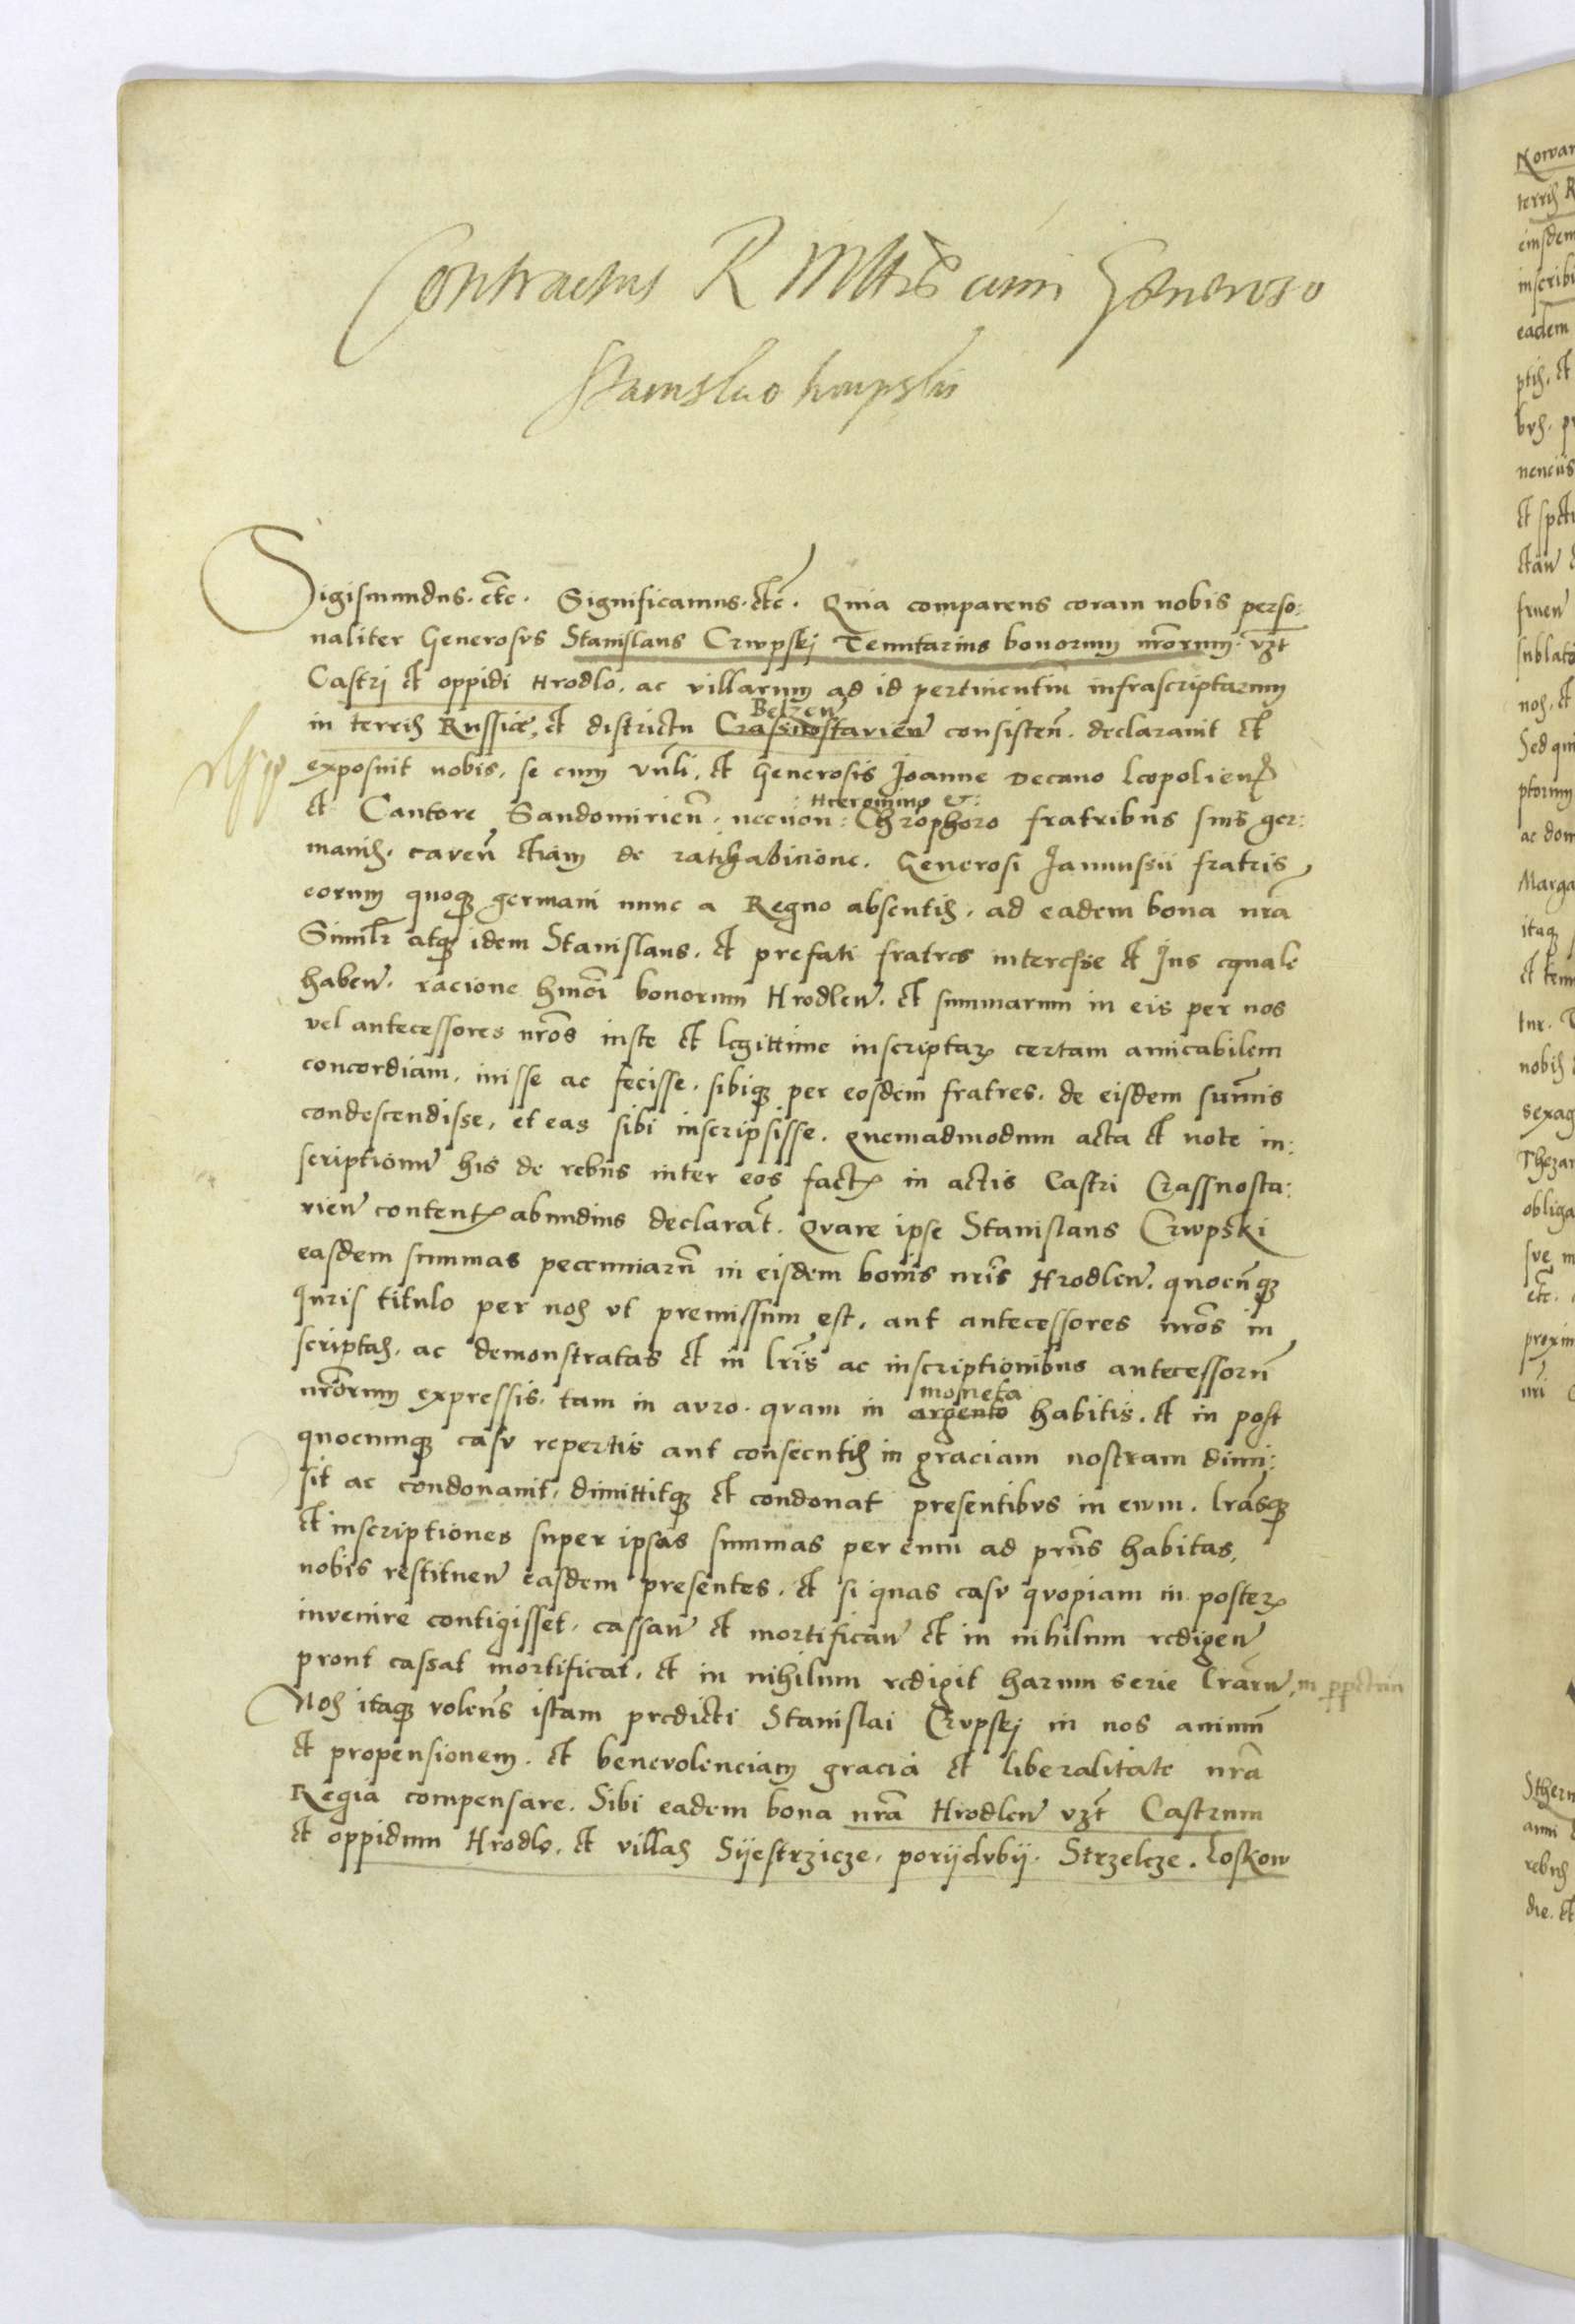 Contractus R Mttis cum Generoso
Stanislao krupski
Sigismundus. etc. Significamus. etc. Quia comparens coram nobis perso:
naliter Generosus Stanislaus Crwpskj Tenutarius bonorum nrorum. vzt
Castrj et oppidi Hrodlo. ac villarum ad id pertinentiu infrascriptarum
Belzen
in terris Russiae, et districtu Crasnostavien consisten. declaravit et
exposuit nobis, se cum Vnli, et Generosis Joanne Decano Leopolien
Hieronimo et:
et Cantore Sandomirien. necnon: Chrophoro fratribus suis ger:
manis. caven etiam de ratihabicione. Generosi Janussii fratris
eorum quoque germani nunc a Regno absentis. ad eadem bona nra
Similr atque idem Stanislaus. et prefati fratres interesse et Jus equale
haben. racione hmoi bonorum Hrodlen. et summarum in eis per nos
vel antecessores nros iuste et legittime inscriptar certam amicabilem
concordiam. inisse ac fecisse. sibique per eosdem fratres. de eisdem sumis
condescendisse, et eas sibi inscripsisse. quemadmodum acta et note in:
scriptionu his de rebus inter eos fact in actis Castri Crassnosta:
vien content abundius declarat. Quare ipse Stanislaus Crwpski
easdem summas pecuniaru in eisdem bonis nris Hrodlen. quocuque
Juris titulo per nos ut premissum est, aut antecessores nros in
scriptas. ac demonstratas et in lris ac inscriptionibus antecessoru
moneta
nrorum expressis. tam in auro. quam in argento habitis. et in post
quocumque casu repertis aut consecutis in graciam nostram dimi:
sit ac condonavit, dimittitque et condonat presentibus in ewm. lrasque
et inscriptiones super ipsas summas per eum ad prns habitas,
nobis restituen easdem presentes. et si quas casu quopiam in poster
invenire contigisset, cassan et mortifican et in nihilum redigen
prout cassat mortificat, et in nihilum redigit harum serie lraru, in perpetuu
Nos itaque volens istam predicti Stanislai Crupskj in nos animu
et propensionem. et benevolenciam gracia et liberalitate nra
Regia compensare. Sibi eadem bona nra Hrodlen vzt Castrum
et oppidum Hrodlo. et villas Sijestrzicze, porijdubij. Strzelcze. Loskow